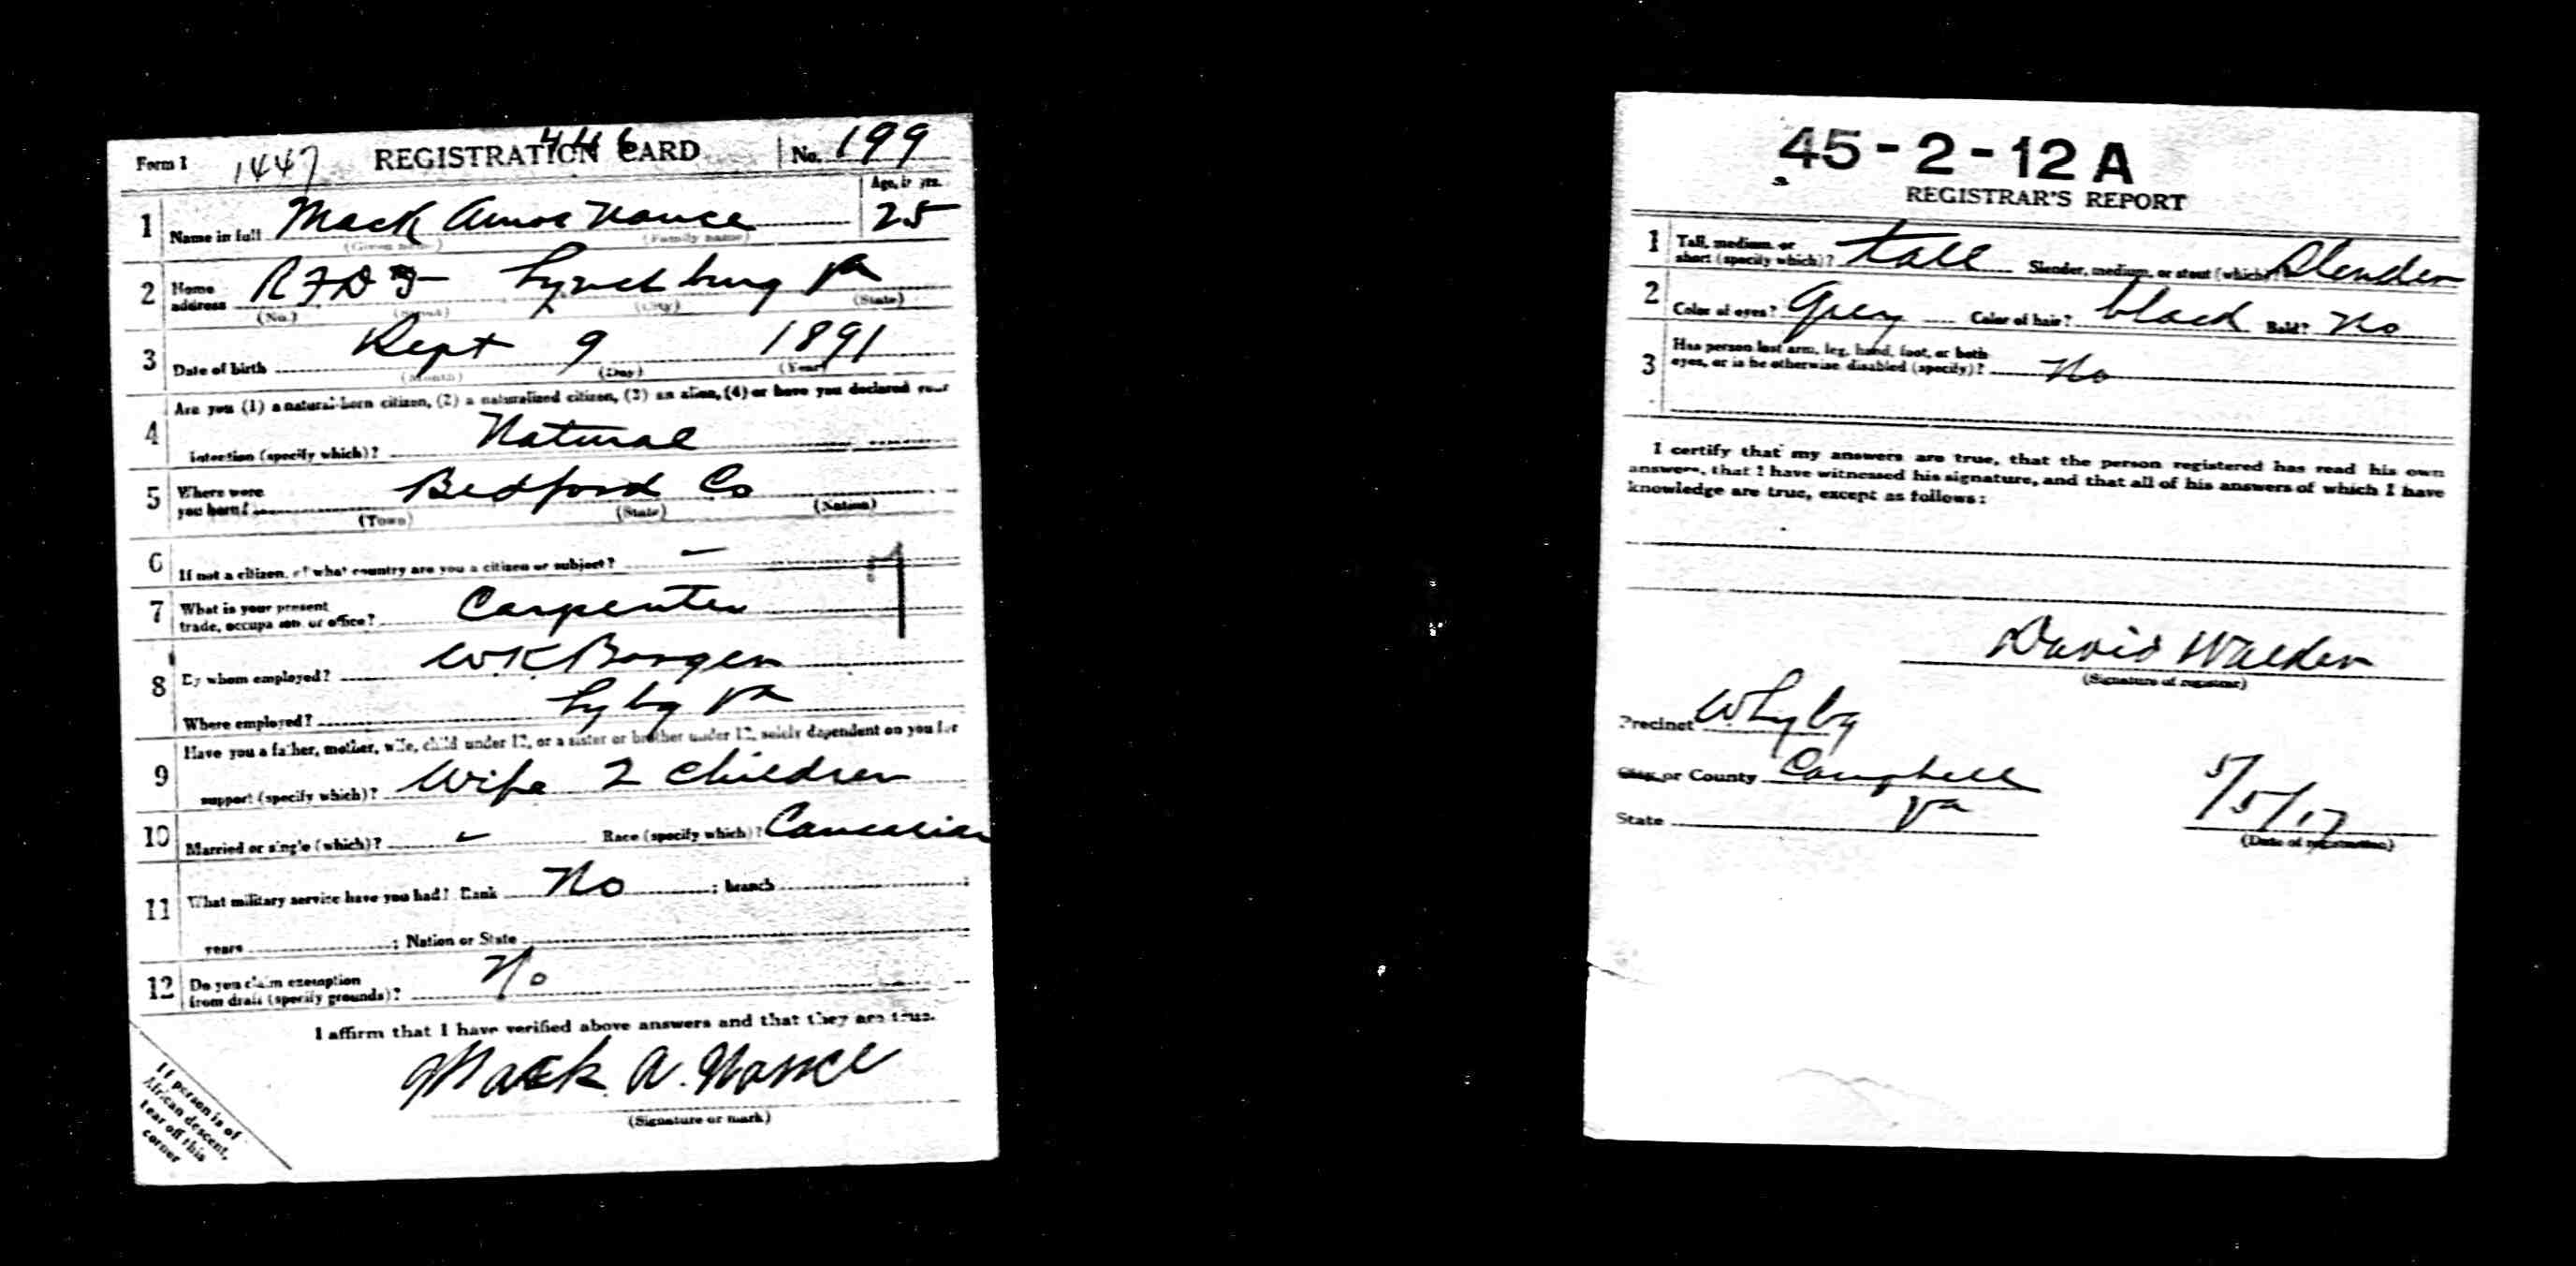 Form 1 1447 REGISTRATION CARD 446 No. 199
Age, in yrs.
1 Name in full Mack Amos Nance 25
(Given name) (Family name)
2 Home address R F D 5 Lynchburg Va
(No.) (Street) (City) (State)
3 Date of birth Sept 9 1891
(Month) (Day) (Year)
Are you (1) a natural-born citizen, (2) a naturalized citizen, (3) an alien, (4) or have you declared your
4 intention (specify which)? Natural
5 Where were you born? Bedford Co
(Town) (State) (Nation)
6 If not a citizen, of what country are you a citizen or subject? -
7 What is your present trade, occupation, or office? Carpenter
8 By whom employed? W K
Where employed? Lybg Va
Have you a father, mother, wife, child under 12, or a sister or brother under 12, solely dependent on you for
9 support (specify which)? Wife 2 children
10 Married or single (which)? Race (specify which)? Caucasian
11 What military service have you had? Rank No ; branch ;
years ; Nation or State
12 Do you claim exemption from draft (specify grounds)? No
I affirm that I have verified above answers and that they are true.
Mack A. Nance
(Signature or mark)
If person is of
African descent,
tear off this
corner
45-2-12 A
REGISTRAR'S REPORT
1 Tall, medium, or short (specify which)? Tall Slender, medium, or stout (which)? Slender
2 Color of eyes? Grey Color of hair? black Bald? No
3 Has person lost arm, leg, hand, foot, or both eyes, or is he otherwise disabled (specify)? No
I certify that my answers are true, that the person registered has read his own
answers, that I have witnessed his signature, and that all of his answers of which I have
knowledge are true, except as follows:
David Walden
(Signature of registrar)
Precinct W Lybg
City or County Campbell
State Va 5/5/17
(Date of registration)